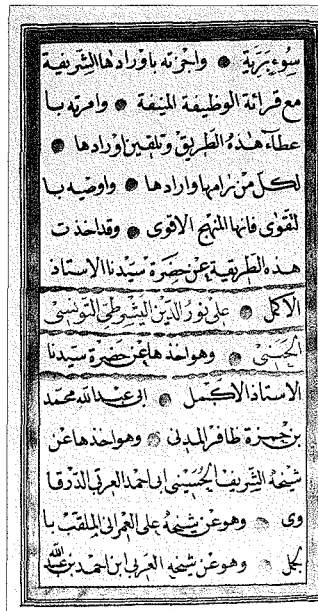 سوء بريّة ● واجزته باورادها الشريفية
مع قرائة الوظيفة المنيفة ● وامرته با
عطآء هذه الطريق وتلقين اورادها ●
لكل من رامها وارادها ● واوصيه با
لتقوى فانها المنهج الاقوى ● وقد اخذت
هذه الطريقة عن حضرة سيّدنا الاستاذ
الاكمل ● على نور الدين اليشرطى التونسى
الحسنى ● وهو اخذها عن حضرة سيّدنا
الاستاذ الاكمل ● ابى عبد الله محمّد
بن حمزة ظافر المدنى ● وهو اخذها عن
شيخه الشريف الحسينى ابى احمد العربى الدرقا
وى ● وهو عن شيخه على العمرانى الملقب با
لجمل ● وهو عن شيخه العربى ابن احمد بن عبد الله